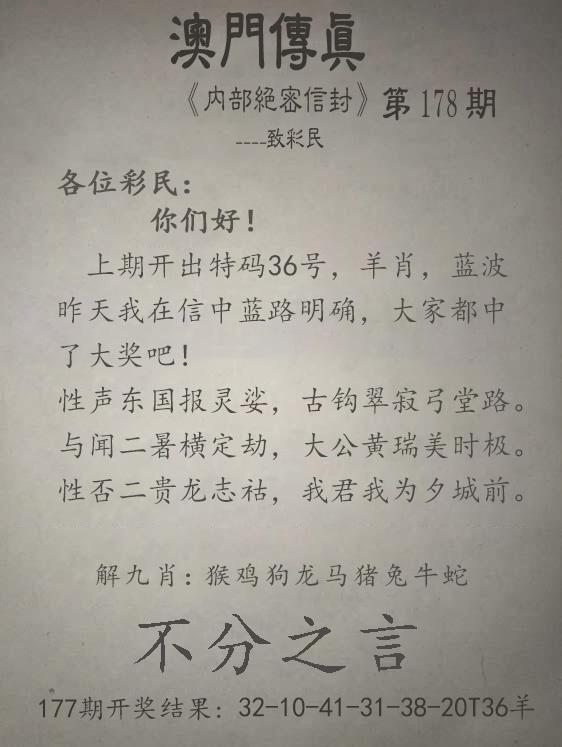 澳門傳眞
《内部絕密信封》第178期
----致彩民
各位彩民：
你们好！
上期开出特码36号，羊肖，蓝波
昨天我在信中蓝路明确，大家都中
了大奖吧！
性声东国报灵娑，古钩翠寂弓堂路。
与闻二暑横定劫，大公黄瑞美时极。
性否二贵龙志祜，我君我为夕城前。
解九肖：猴鸡狗龙马猪兔牛蛇
不分之言
177期开奖结果：32-10-41-31-38-20T36羊